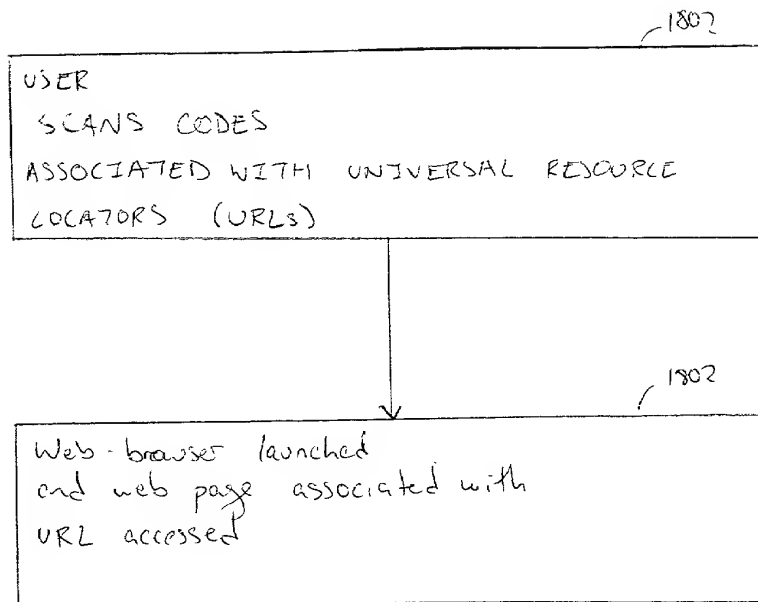 1802
USER
SCANS CODES
ASSOCIATED WITH UNIVERSAL RESOURCE
LOCATORS (URLs)
1802
Web-browser launched
and web page associated with
URL accessed